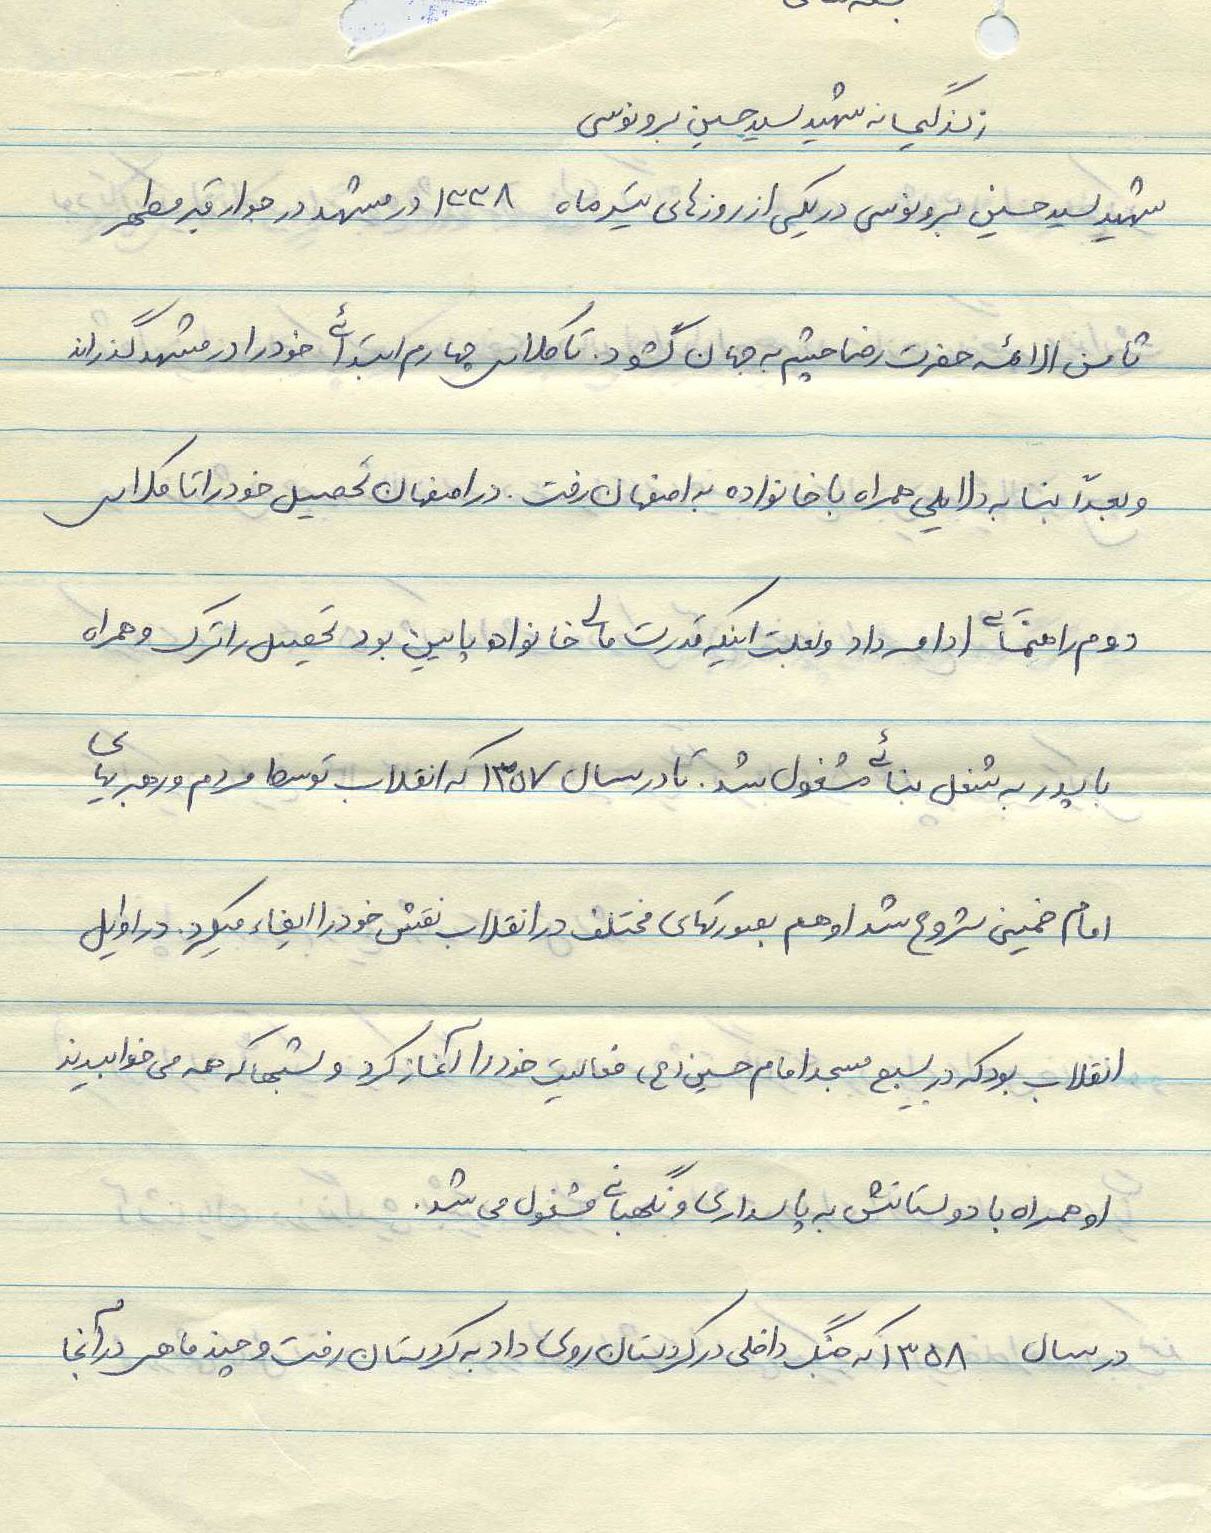 بسمه تعالی
زندگیمانه شهید سید حسین برونوسی
شهید سید حسین برونوسی در یکی از روزهای تیر ماه ۱۳۳۸ در مشهد در جوار قبر مطهر
ثامن الائمه حضرت رضا چشم به جهان گشود. تا کلاس چهارم ابتدائی خود را در مشهد گذراند
و بعداً بنا به دلایلی همراه با خانواده به اصفهان رفت. در اصفهان تحصیل خود را تا کلاس
دوم راهنمائی ادامه داد و بعلت اینکه قدرت مالی خانواده پایین بود تحصیل را ترک و همراه
با پدر به شغل بنائی مشغول شد. تا در سال ۱۳۵۷ که انقلاب توسط مردم و رهبریهای
امام خمینی شروع شد او هم بصورتهای مختلف در انقلاب نقش خود را ایفاء میکرد. در اوایل
انقلاب بود که در بسیج مسجد امام حسین (ع) فعالیت خود را آغاز کرد و شبها که همه می خوابیدند
او همراه با دوستانش به پاسداری و نگهبانی مشغول می شد.
در سال ۱۳۵۸ که جنگ داخلی در کردستان روی داد به کردستان رفت و چند ماهی در آنجا